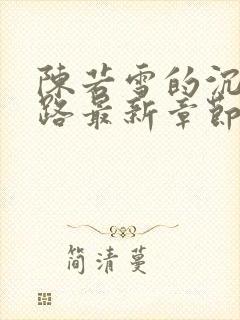 陳若雪的沉
路最新章節
简清蔓